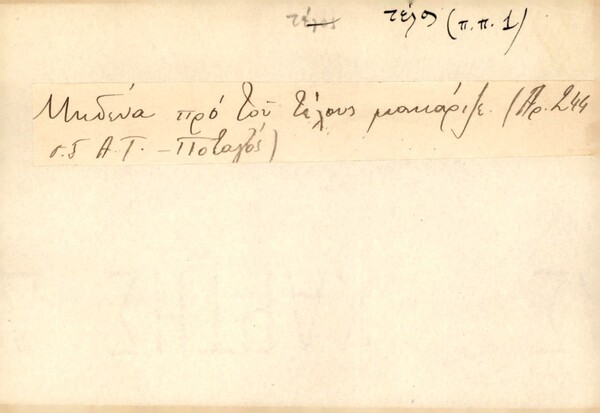 τέλος τέλος (π.π. 1)
Μηδένα πρό τοῦ τέλους μακάριζε. (Ἀρ. 244
σ. 5 Α.Τ. – Ποταμός)